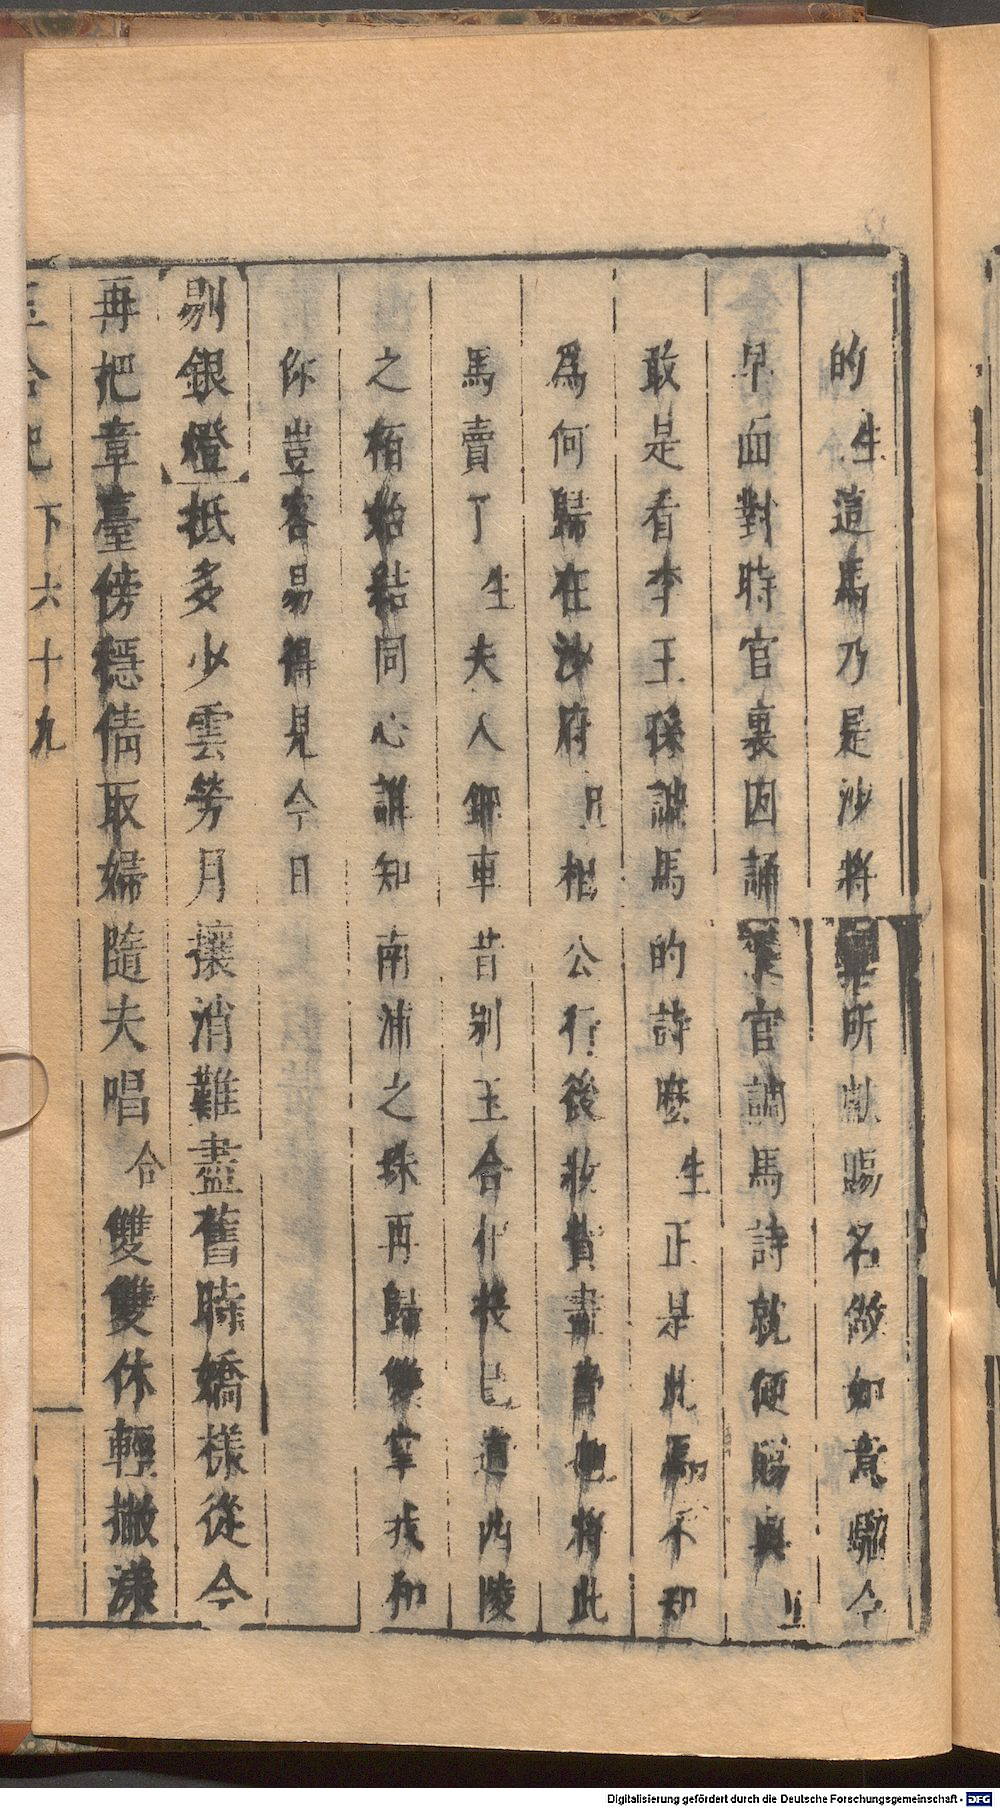 的生這馬乃是沙將軍所獻賜名做如意騮今
早面對時官裏因誦下官調馬詩就便賜與旦
敢是看李王孫調馬的詩麼生正是此馬不知
爲何歸在沙府旦相公行後妝貲盡費也將此
馬賣了生夫人鈿車昔別玉合代投已道西陵
之栢始結同心誰知南浦之珠再歸雙掌我和
你豈容易得見今日
剔銀燈抵多少雲勞月攘消難盡舊時嬌樣從今
再把章臺傍穩倩取婦隨夫唱合雙雙休輕撇漾
玉合記下六十九
Digitalisierung gefördert durch die Deutsche Forschungsgemeinschaft - DFG